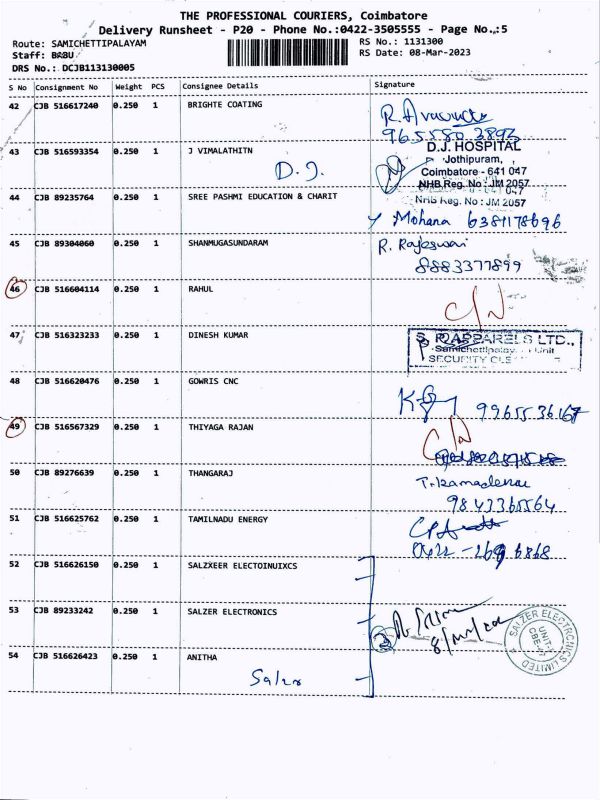 THE PROFESSIONAL COURIERS, Coimbatore
Delivery Runsheet - P20 - Phone No.:0422-3505555 - Page No.,:5
Route: SAMICHETTIPALAYAM RS No.: 1131300
Staff: BABU RS Date: 08-Mar-2023
DRS No.: DCJB113130005
S No Consignment No Weight PCS Consignee Details Signature
42 CJB 516617240 0.250 1 BRIGHTE COATING
965580 3892
43 CJB 516593354 0.250 1 J VIMALATHITN D.J. HOSPITAL
D.J. Jothipuram,
Coimbatore - 641 047
NHB Reg. No : JM 2057
44 CJB 89235764 0.250 1 SREE PASHMI EDUCATION & CHARIT
NHB Reg. No : JM 2057
Mohana 6381178696
45 CJB 89304060 0.250 1 SHANMUGASUNDARAM R. Rajeswari
8883377899
46 CJB 516604114 0.250 1 RAHUL
C/N
47 CJB 516323233 0.250 1 DINESH KUMAR APPARELS LTD.,
Samichettipalay Unit
SECURITY
48 CJB 516620476 0.250 1 GOWRIS CNC
9965536167
49 CJB 516567329 0.250 1 THIYAGA RAJAN C/N
50 CJB 89276639 0.250 1 THANGARAJ
9843365564
51 CJB 516625762 0.250 1 TAMILNADU ENERGY
52 CJB 516626150 0.250 1 SALZXEER ELECTOINUIXCS
53 CJB 89233242 0.250 1 SALZER ELECTRONICS
SALZER ELECTRONICS LIMITED
54 CJB 516626423 0.250 1 ANITHA